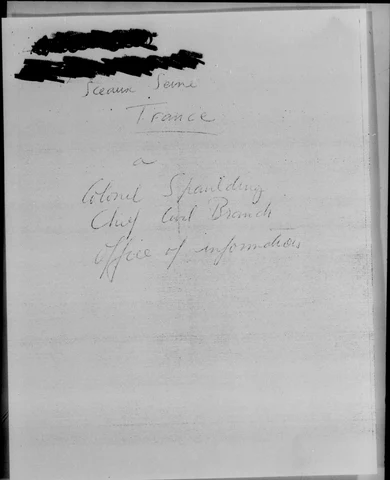 Sceaux Seine
France
a
Colonel Spaulding
Chief Civil Branch
Office of information